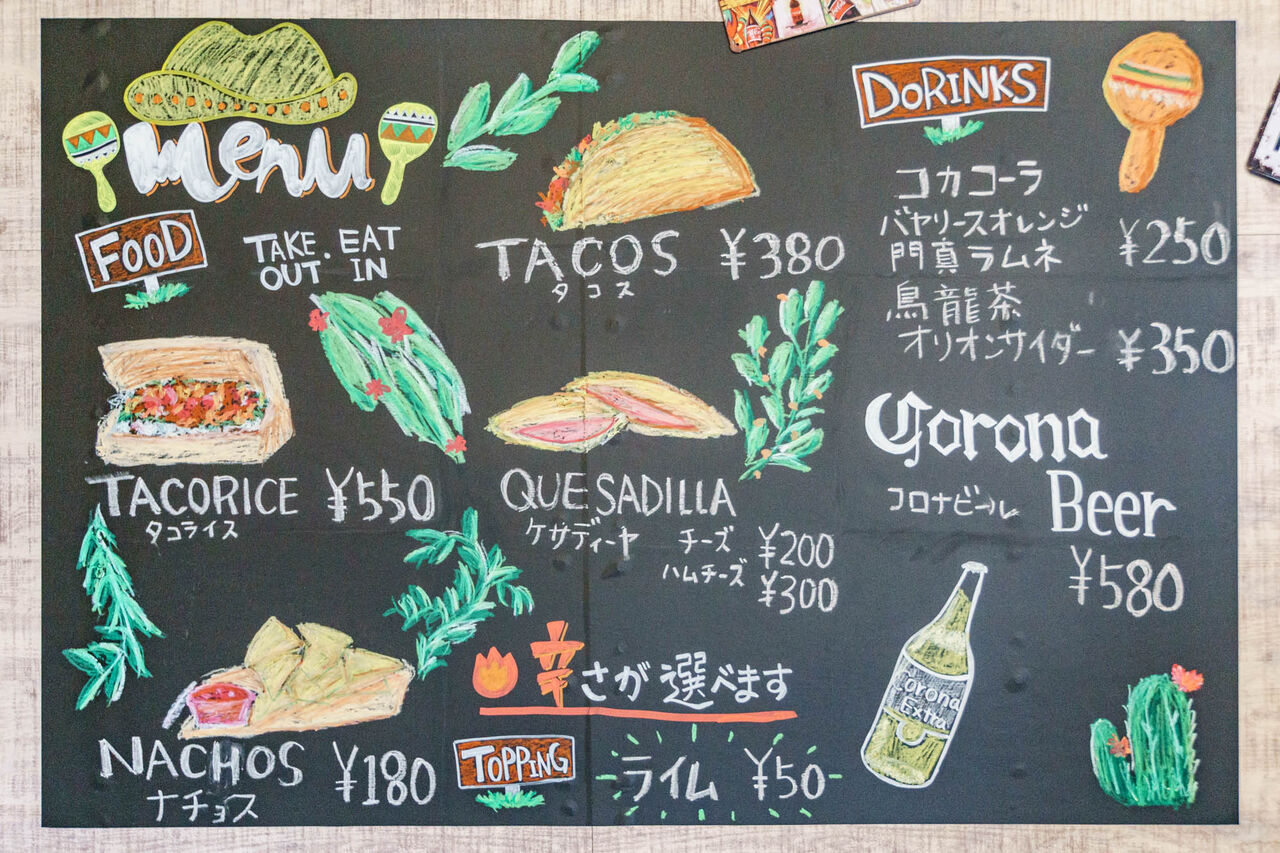 Menu
FOOD
TAKE. EAT
OUT IN
TACOS ¥380
タコス
TACORICE ¥550
タコライス
QUESADILLA
ケサディーヤ チーズ ¥200
ハムチーズ ¥300
NACHOS ¥180
ナチョス
辛さが選べます
TOPPING
ライム ¥50
DORINKS
コカコーラ
バヤリースオレンジ
門真ラムネ ¥250
烏龍茶
オリオンサイダー ¥350
Corona
コロナビール Beer
¥580
Corona
Extra